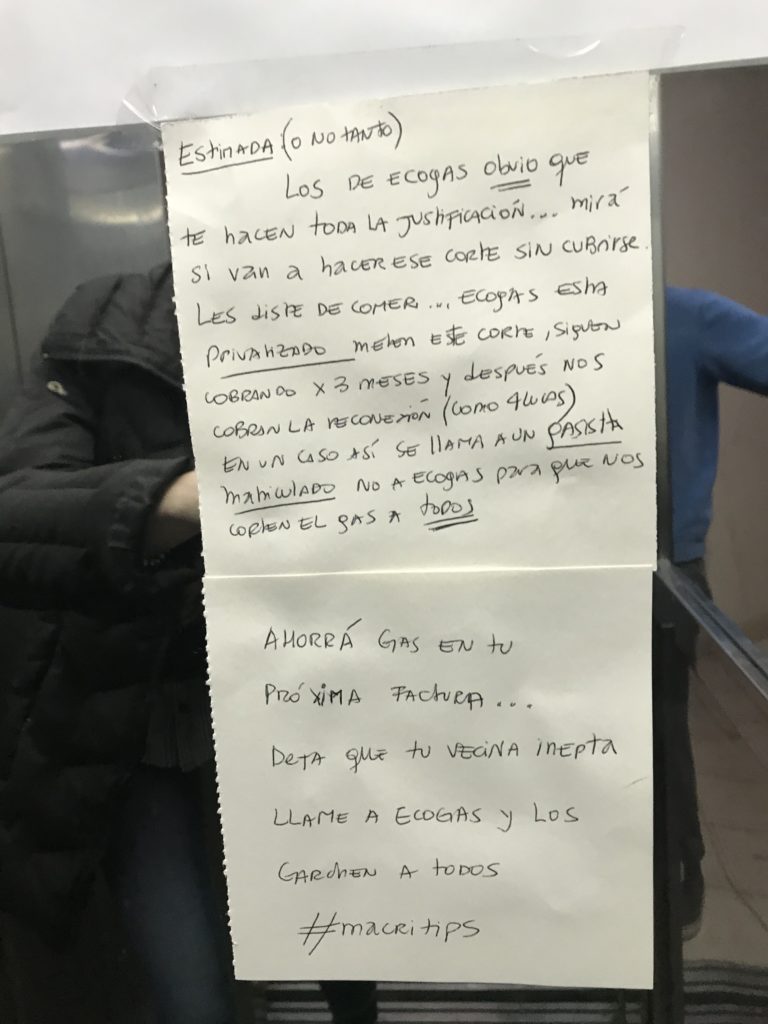 ESTIMADA (O NO TANTO)
LOS DE ECOGAS obvio que
TE hACEN TODA LA JUSTIFICACIÓN... mirá
SI VAN A hACER ESE CORTE SIN CUBRIRSE.
LES DISTE DE COMER... ECOGAS ESTA
PRIVATIZADO METEN ESTE CORTE, SIGUEN
COBRANDO X 3 MESES y DESPUÉS NOS
COBRAN LA RECONEXIÓN (COMO 4 LUCAS)
EN UN CASO ASÍ SE LLAMA A UN GASISTA
MATRICULADO NO A ECOGAS para que NOS
CORTEN EL GAS A TODOS
AHORRÁ GAS EN TU
PRÓXIMA FACTURA...
DEJA QUE TU VECINA INEPTA
LLAME A ECOGAS y LOS
GARCHEN A TODOS
#macritips